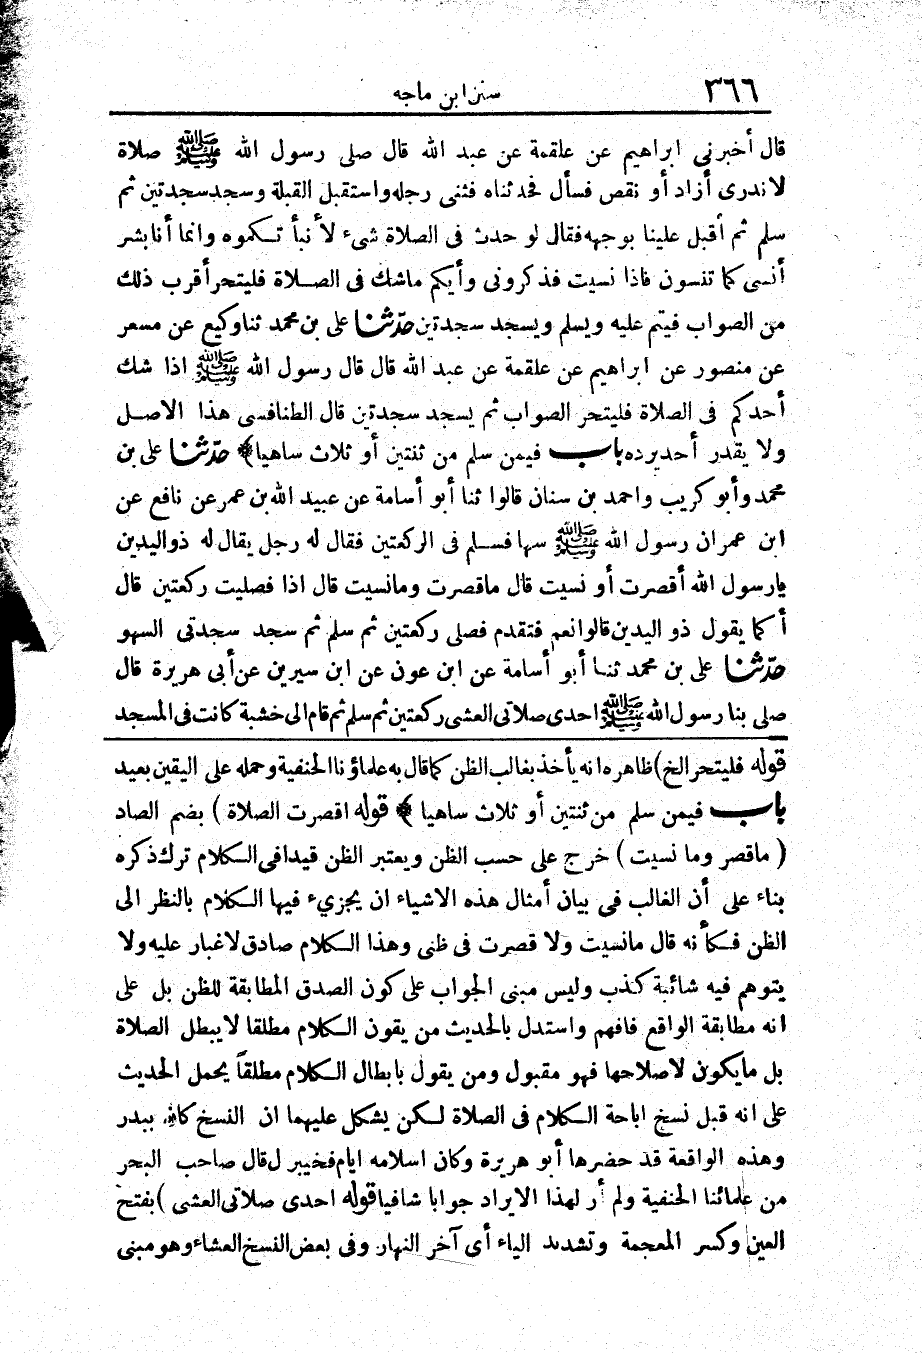 سنن ابن ماجه ٣٦٦
قال أخبرني ابراهيم عن علقمة عن عبد الله قال صلى رسول الله ﷺ صلاة
لاندرى أزاد أو نقص فسأل فحدثناه فثنى رجله واستقبل القبلة وسجد سجدتين ثم
سلم ثم أقبل علينا بوجهه فقال لو حدث فى الصلاة شىء لأنبأتكموه وانما أنا بشر
أنسى كما تنسون فاذا نسيت فذكرونى وأيكم ماشك فى الصلاة فليتحر أقرب ذلك
من الصواب فيتم عليه ويسلم ويسجد سجدتين حدّثنا على بن محمد ثنا وكيع عن مسعر
عن منصور عن ابراهيم عن علقمة عن عبد الله قال قال رسول الله ﷺ اذا شك
أحدكم فى الصلاة فليتحر الصواب ثم يسجد سجدتين قال الطنافسى هذا الاصل
ولا يقدر أحد يرده باب فيمن سلم من ثنتين أو ثلاث ساهيا﴾ حدّثنا على بن
محمد وأبو كريب واحمد بن سنان قالوا ثنا أبو أسامة عن عبيد الله بن عمر عن نافع عن
ابن عمر ان رسول الله ﷺ سها فسلم فى الركعتين فقال له رجل يقال له ذو اليدين
يارسول الله أقصرت أو نسيت قال ماقصرت ومانسيت قال اذا فصليت ركعتين قال
أكما يقول ذو اليدين قالوا نعم فتقدم فصلى ركعتين ثم سلم ثم سجد سجدتى السهو
حدّثنا على بن محمد ثنا أبو أسامة عن ابن عون عن ابن سيرين عن أبى هريرة قال
صلى بنا رسول الله ﷺ احدى صلاتى العشى ركعتين ثم سلم ثم قام الى خشبة كانت فى المسجد
قوله فليتحر الخ) ظاهره انه يأخذ بغالب الظن كما قال به علماؤنا الحنفية وحمله على اليقين بعيد
باب فيمن سلم من ثنتين أو ثلاث ساهيا ﴾ قوله اقصرت الصلاة ) بضم الصاد
( ماقصر وما نسيت ) خرج على حسب الظن ويعتبر الظن قيدا فى الكلام ترك ذكره
بناء على أن الغالب فى بيان أمثال هذه الاشياء ان يجزيء فيها الكلام بالنظر الى
الظن فكأنه قال مانسيت ولا قصرت فى ظنى وهذا الكلام صادق لاغبار عليه ولا
يتوهم فيه شائبة كذب وليس مبنى الجواب على كون الصدق المطابقة للظن بل على
انه مطابقة الواقع فافهم واستدل بالحديث من يقون الكلام مطلقا لايبطل الصلاة
بل مايكون لاصلاحها فهو مقبول ومن يقول بابطال الكلام مطلقاً يحمل الحديث
على انه قبل نسخ اباحة الكلام فى الصلاة لكن يشكل عليهما ان النسخ كان ببدر
وهذه الواقعة قد حضرها أبو هريرة وكان اسلامه ايام خيبر قال صاحب البحر
من علمائنا الحنفية ولم أر لهذا الايراد جوابا شافيا قوله احدى صلاتى العشى ) بفتح
العين وكسر المعجمة وتشديد الياء أى آخر النهار وفى بعض النسخ العشاء وهو مبنى